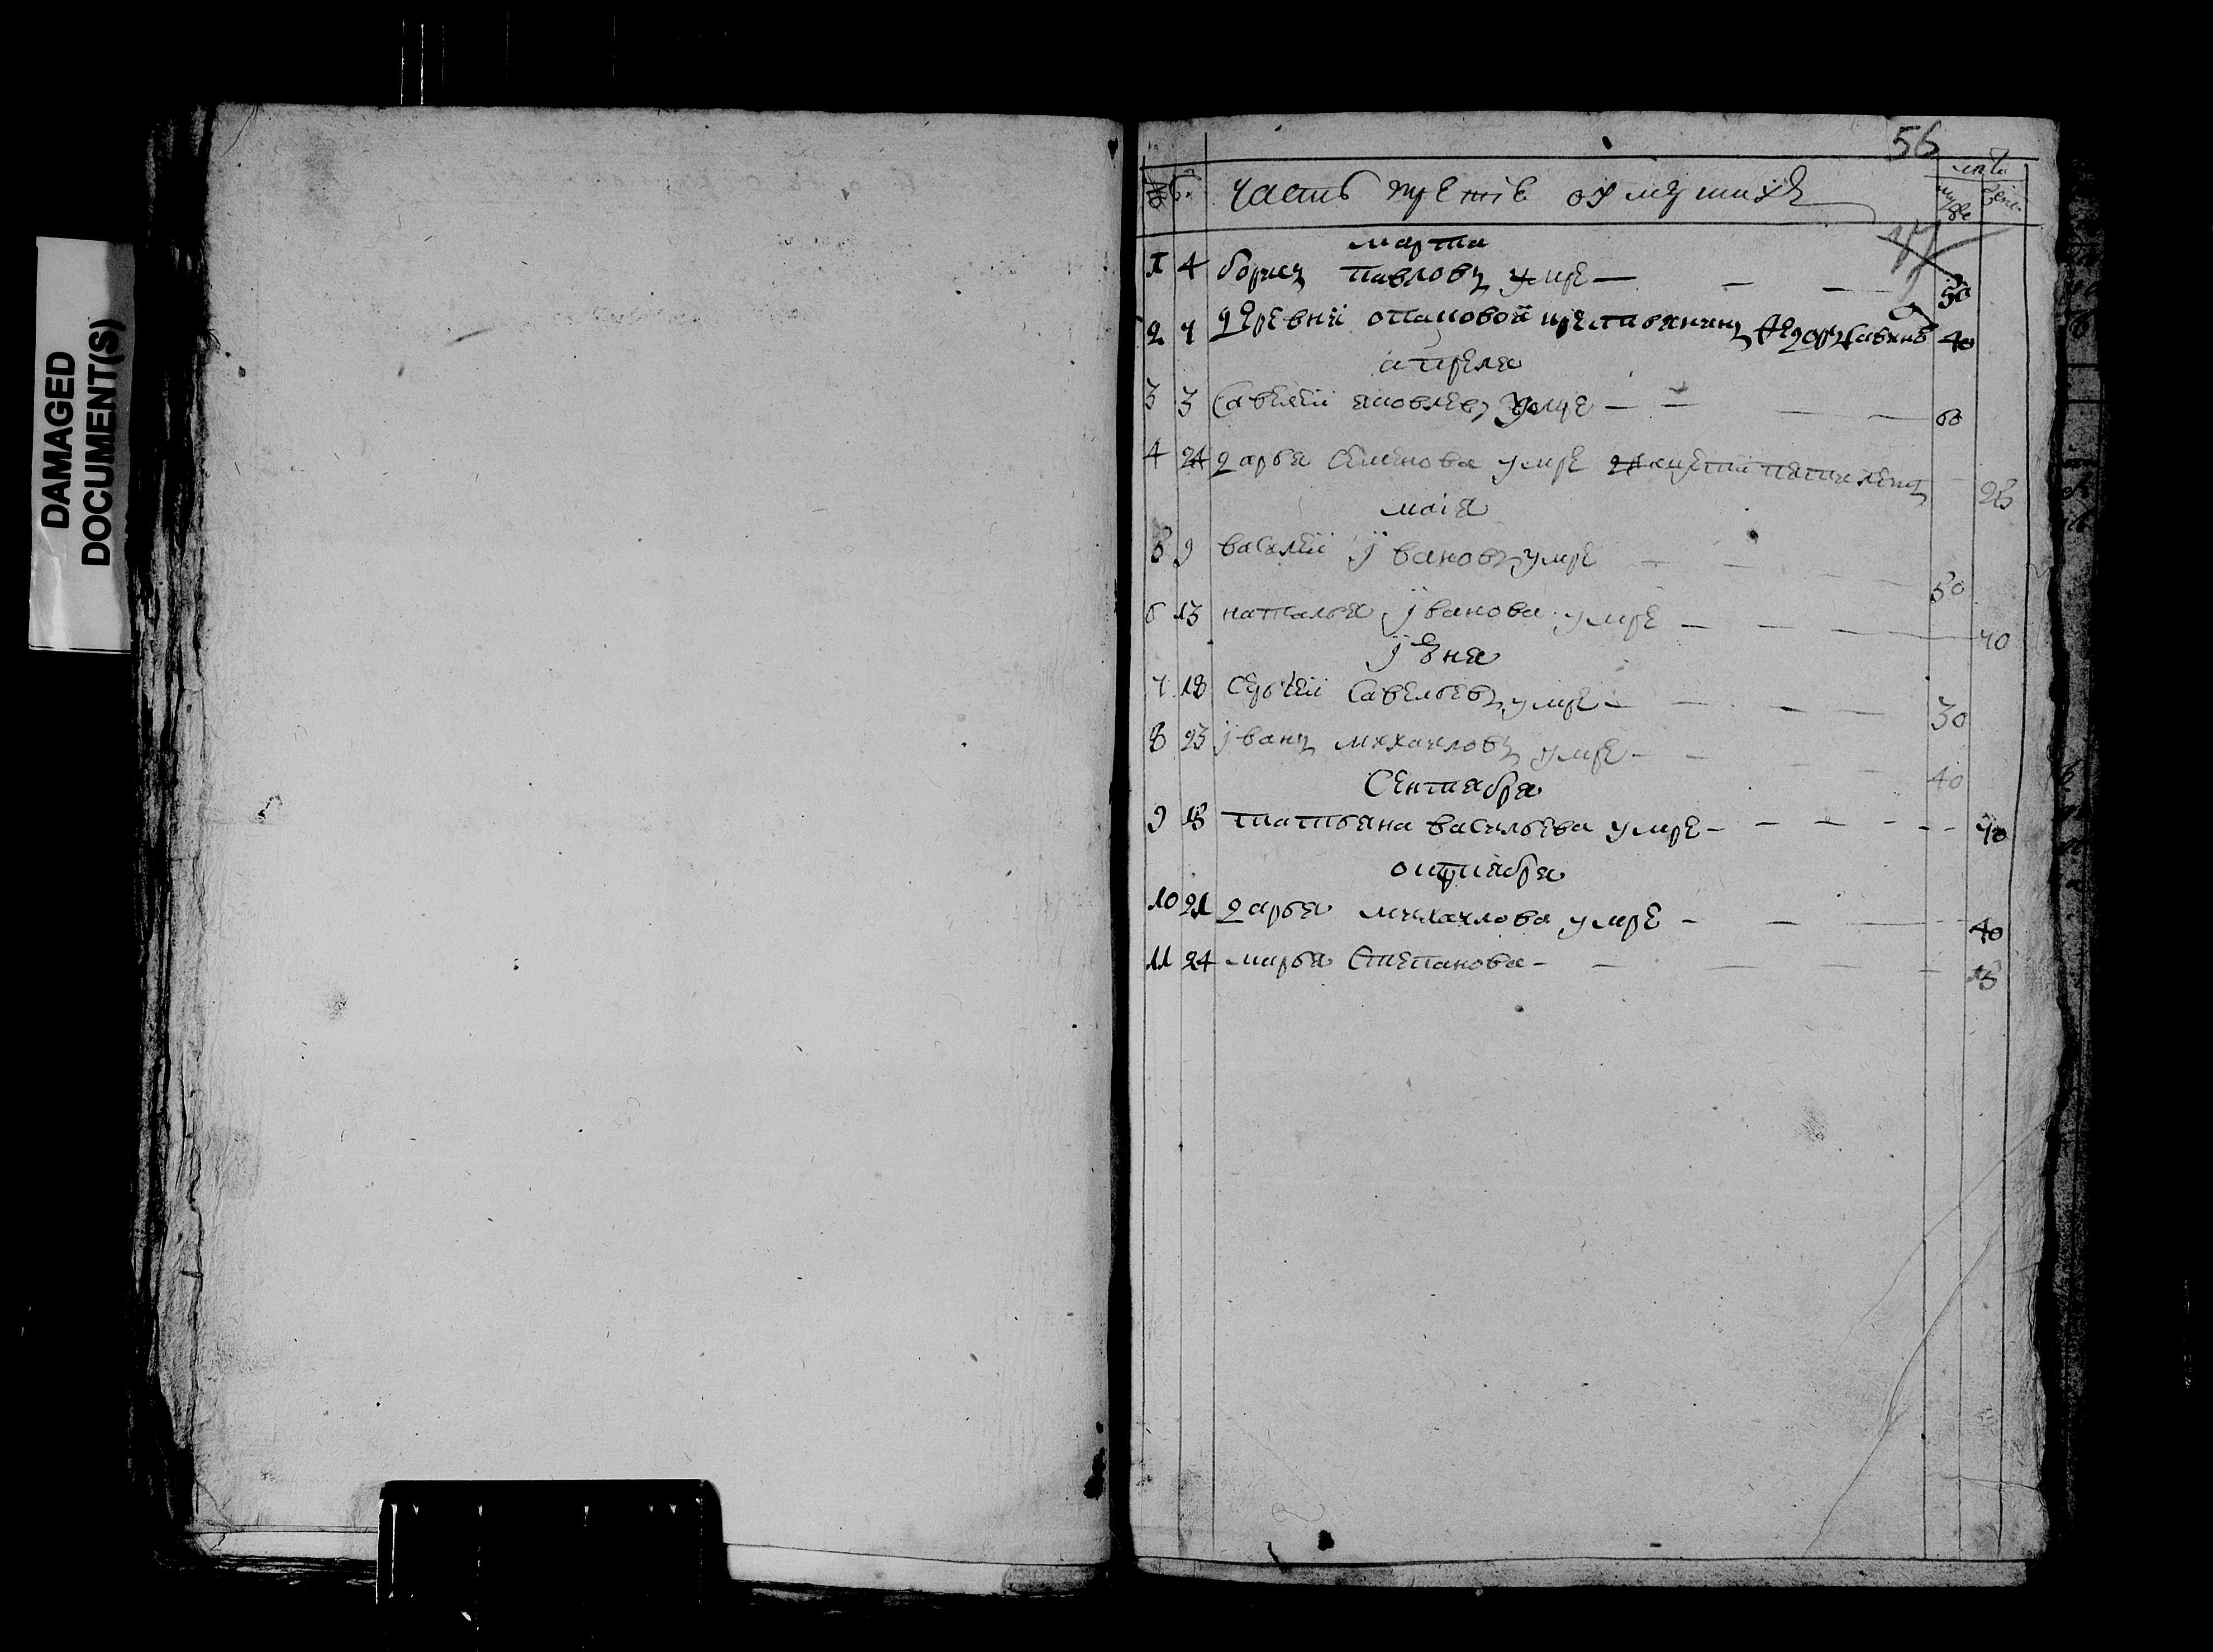 DAMAGED
DOCUMENT(S)
56
часть третiе о умершихъ
лѣта
марта
1 4 борисъ павловъ умре 50
2 7 деревни отаповой крестьянинъ федоръ савинъ 40
апреля
3 3 савелей яковлевъ умре 60
4 24 дарья семенова умре 25
маiя
5 9 василей ивановъ умре 50
6 13 наталья иванова умре 70
июня
7 18 сергей савельевъ умре 30
8 23 иванъ михаиловъ умре 40
сентября
9 15 татьяна васильева умре 70
октября
10 21 дарья михаилова умре 40
11 24 марья степанова 15